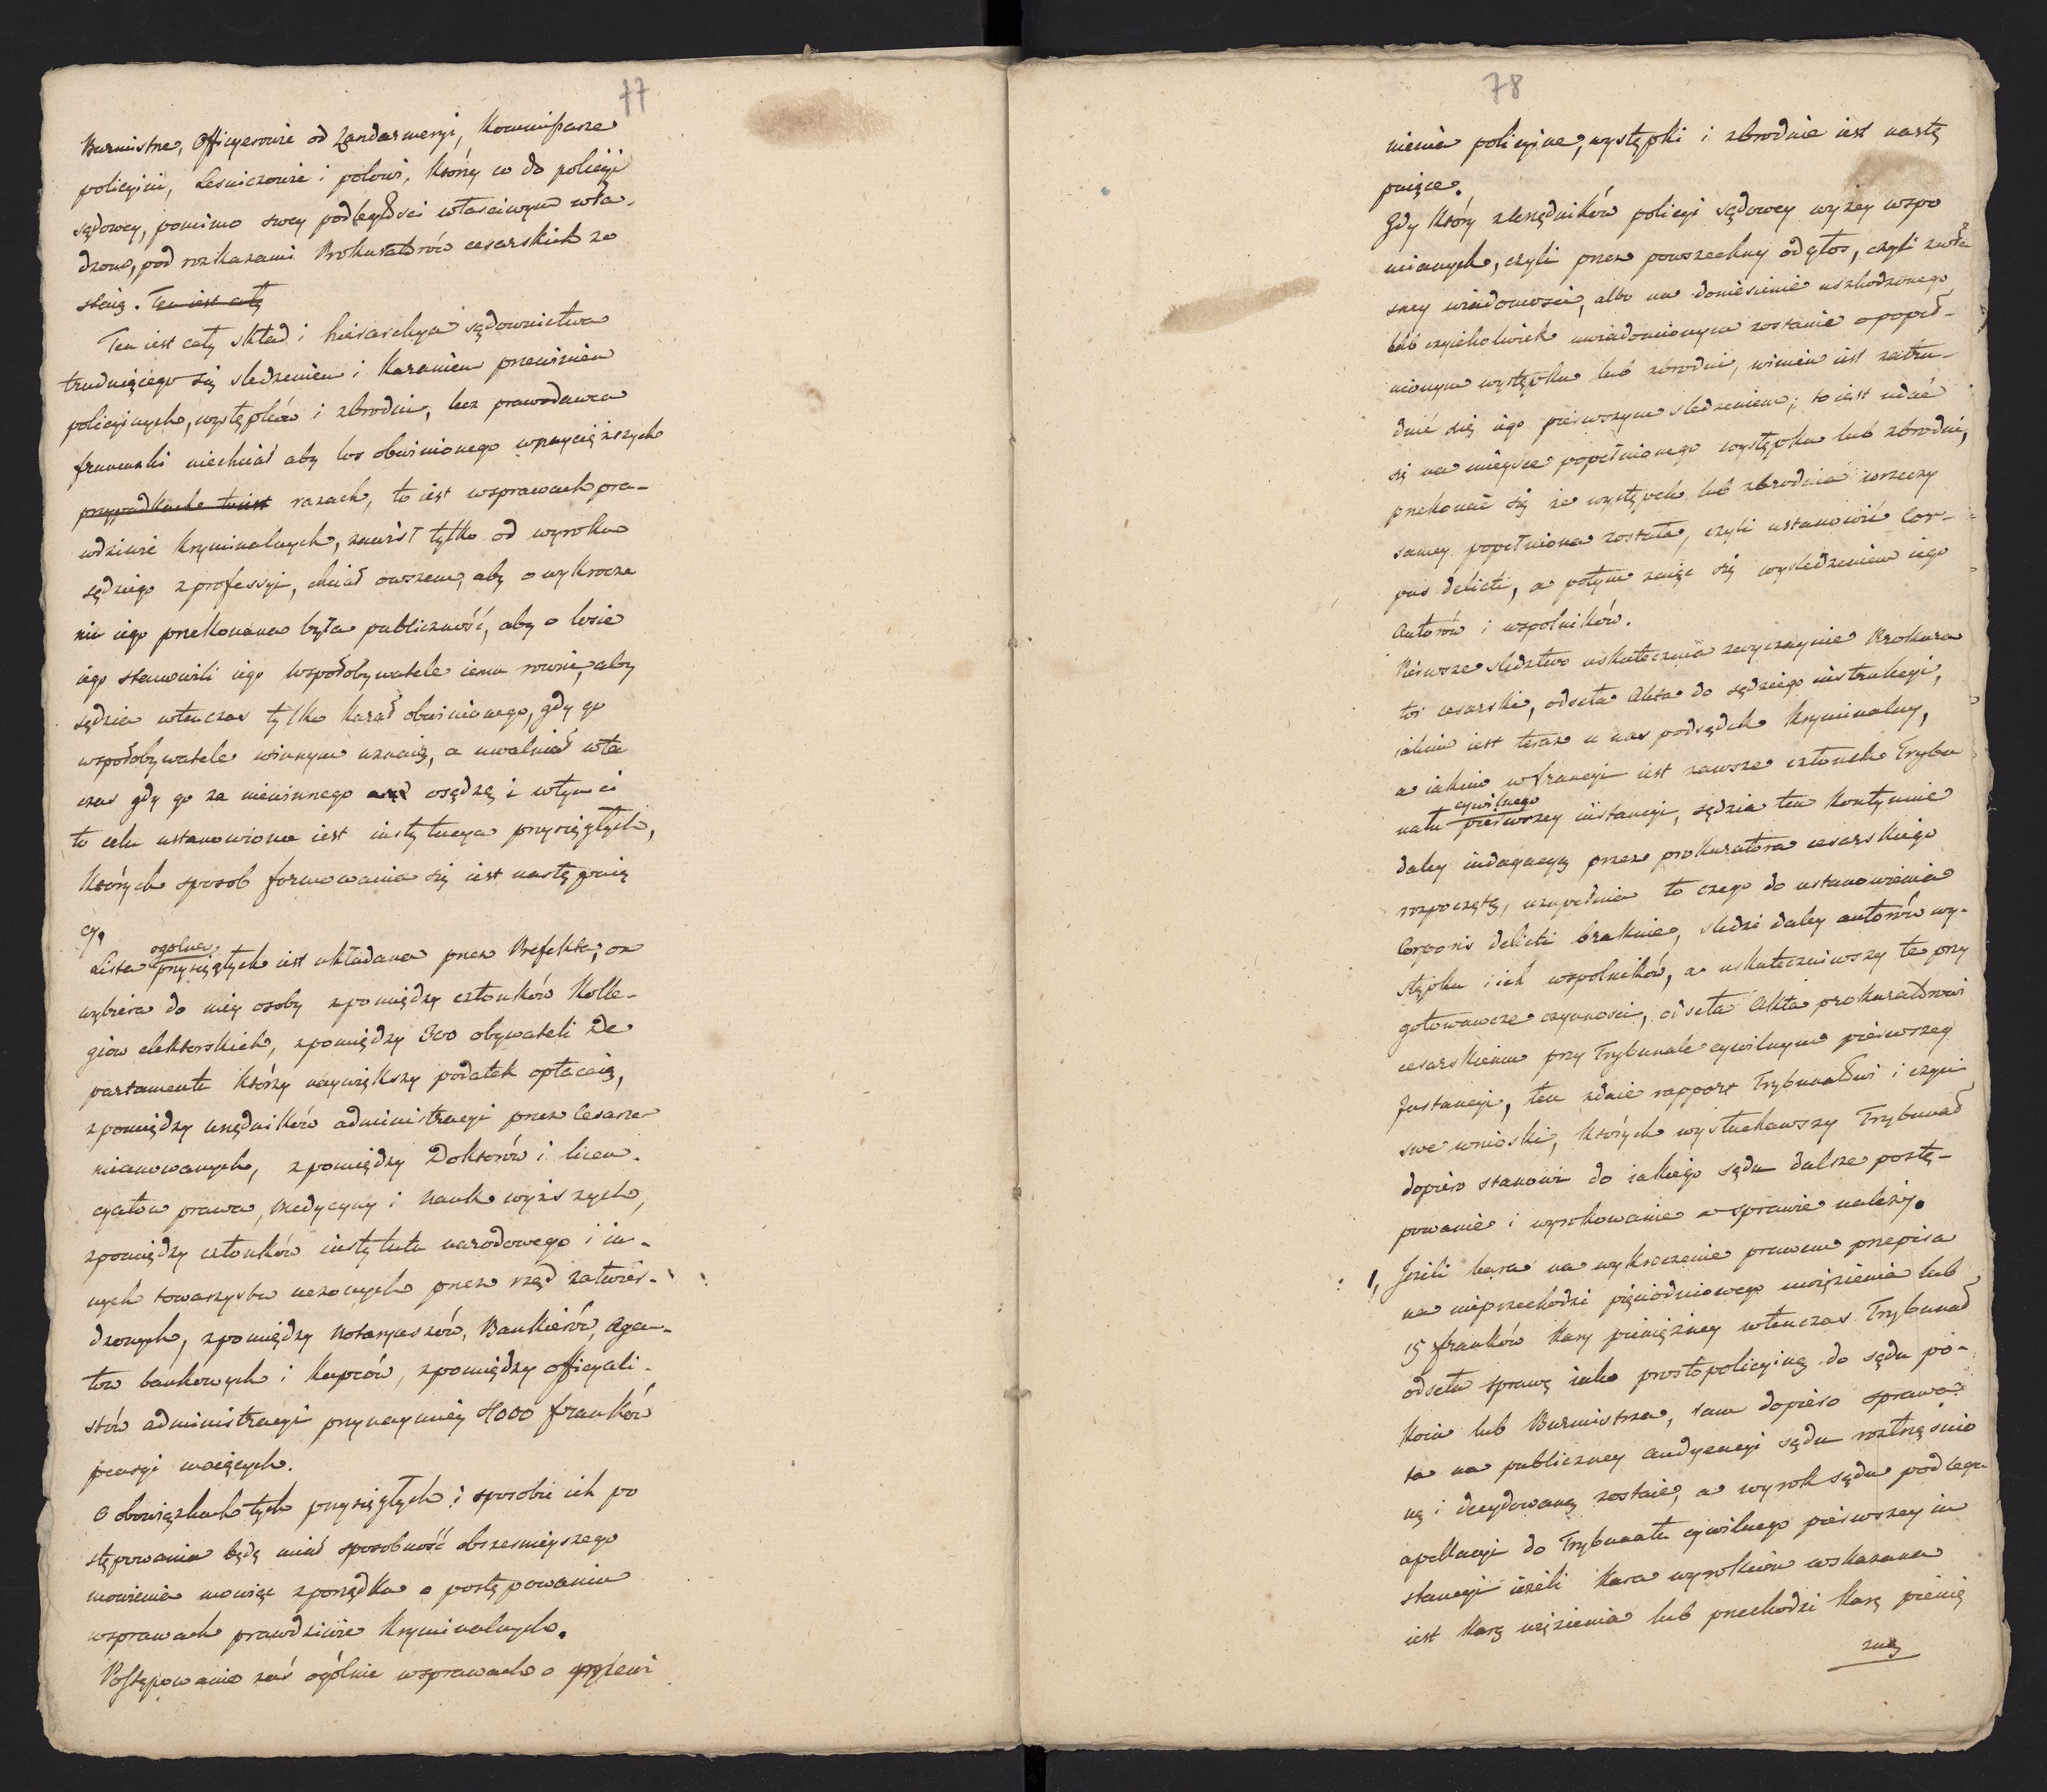 77
Burmistrze, Officyerowie od Żandarmeryi, Kommissarze
policyini, Leśniczowie i polowi, którzy co do policyi
sądowey, pomimo swey podległości właściwym wła-
dzom, pod rozkazami Prokuratorów cesarskich zo
staią. Ten iest cały
Ten iest cały skład i hierarchya sądownictwa
trudniącego się sledzeniem i karaniem przewinien
policyinych, występków i zbrodni, lecz prawodawca
francuski niechciał aby los obwinionego wprzycięższych
przypadkach to iest razach, to iest wsprawach pra-
wdziwie kryminalnych, zawisł tylko od wyroku
sędziego z professyi, chciał owszem, aby o wykrocze
niu iego przekonana była publiczność, aby o losie
iego stanowili iego współobywatele iemu rowni, aby
sędzia wtenczas tylko karał obwinionego, gdy go
współobywatele winnym uznaią, a uwalniał wten
czas gdy go za niewinnego osądzą i wtym
to celu ustanowiona iest instytucya przysięgłych,
których sposob formowania się iest następuią
cy.
ogolna
Lista przysięgłych iest układana przez Prefekta; on
wybiera do niey osoby zpomiędzy członków Kolle-
giów elektorskich, zpomiędzy 300 obywateli De
partamentu którzy naywiększy podatek opłacaią,
zpomiędzy urzędników administracyi przez Cesarza
mianowanych, zpomiędzy Doktorów i licen-
cyatow prawa, Medycyny i Nauk wyższych,
zpomiędzy członków instytutu narodowego i in-
nych towarzystw uczonych przez rząd zatwier-
dzonych, zpomiędzy Notaryuszów, Bankierów, Agen-
tow bankowych i kupców, zpomiędzy officyali-
stów administracyi przynaymniey 4000 franków
pensyi maiących.
O obowiązkach tych przysięgłych i sposobie ich po
stępowania będę miał sposobność obszernieyszego
mowienia mowiąc zporządku o postępowaniu
wsprawach prawdziwie kryminalnych.
Postępowanie zaś ogólnie wsprawach o przewi
78
nienia policyine, występki i zbrodnie iest nastę
puiące.
Gdy który z Urzędników policyi sądowey wyżey wspo
mianych, czyli przez powszechny odgłos, czyli zwła
sney wiadomości, albo na doniesienie uszkodzonego
lub czyiekolwiek uwiadomionym zostanie o popeł-
nionym występku lub zbrodni, winien iest zatru-
dnić się iego pierwszym sledzeniem; to iest udać
się na mieysce popełnionego występku lub zbrodni,
przekonać się że występek lub zbrodnia wrzeczy
samey popełniona została, czyli ustanowić Cor-
pus delicti, a potym zaiąć się wysledzeniem iego
Autorów i wspolników.
Pierwsze sledztwo uskutecznia zwyczaynie Prokura
tor cesarski, odseła Akta do sędziego instrukcyi,
iakim iest teraz u nas podsędek kryminalny,
a iakim wfrancyi iest zawsze członek Trybu
cywilnego
nału pierwszey instancyi, sędzia ten kontynuie
daley indagacyą przez prokuratora cesarskiego
rozpoczętą, uzupełnia to czego do ustanowienia
Corporis delicti braknie, sledzi daley autorów wy-
stępku i ich wspolników, a uskuteczniwszy te przy
gotowawcze czynności, odseła Akta prokuratorowi
cesarskiemu przy Trybunale cywilnym pierwszey
Instancyi, ten zdaie rapport Trybunałowi i czyni
swe wnioski, których wysłuchawszy Trybunał
dopiero stanowi do iakiego sądu dalsze postę-
powanie i wyrokowanie w sprawie należy.
1, Jeżeli kara na wykroczenie prawem przepisa
na nieprzechodzi pięciodniowego więzienia lub
15 franków kary pieniężney wtenczas Trybunał
odseła sprawę iako prostopolicyiną do sądu po-
koiu lub Burmistrza, tam dopiero sprawa
ta na publiczney audyencyi sądu roztrząsnio
ną i decydowaną zostaie, a wyrok sądu podlega
apellacyi do Trybunału cywilnego pierwszey in
stancyi ieżeli kara wyrokiem wskazana
iest karą więzienia lub przechodzi karę pienię
żną